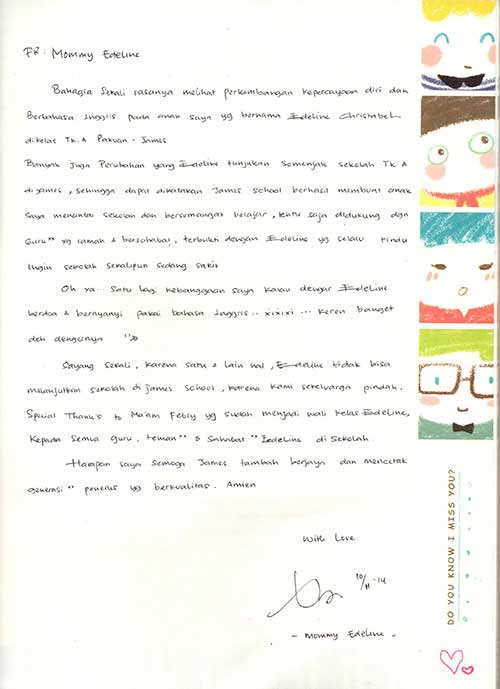 FR: Mommy Edeline
Bahagia sekali rasanya melihat perkembangan kepercayaan diri dan
Berbahasa Inggris pada anak saya yg bernama Edeline Christabel
dikelas TK.A Pakuan - James
Banyak Juga Perubahan yang Edeline tunjukan semenjak sekolah TK.A
di james, sehingga dapat dikatakan James school berhasil membuat anak
saya mencintai sekolah dan bersemangat belajar, tentu saja didukung dgn
Guru" yg ramah & bersahabat, terbukti dengan Edeline yg selalu rindu
Ingin sekolah sekalipun sedang sakit
Oh ya... satu lagi kebanggaan saya kalau dengar Edeline
berdoa & bernyanyi pakai bahasa Inggris .. xixixi ... keren banget
deh dengarnya
Sayang sekali, karena satu & lain hal, Edeline tidak bisa
melanjutkan sekolah di james school, karena kami sekeluarga pindah.
Special Thank's to Ma'am Febry yg sudah menjadi wali kelas Edeline,
Kepada semua guru, teman" & sahabat" Edeline di sekolah
Harapan saya semoga James tambah berjaya dan mencetak
generasi" penerus yg berkualitas. Amien
With Love
10/11-14
- Mommy Edeline -
DO YOU KNOW I MISS YOU?